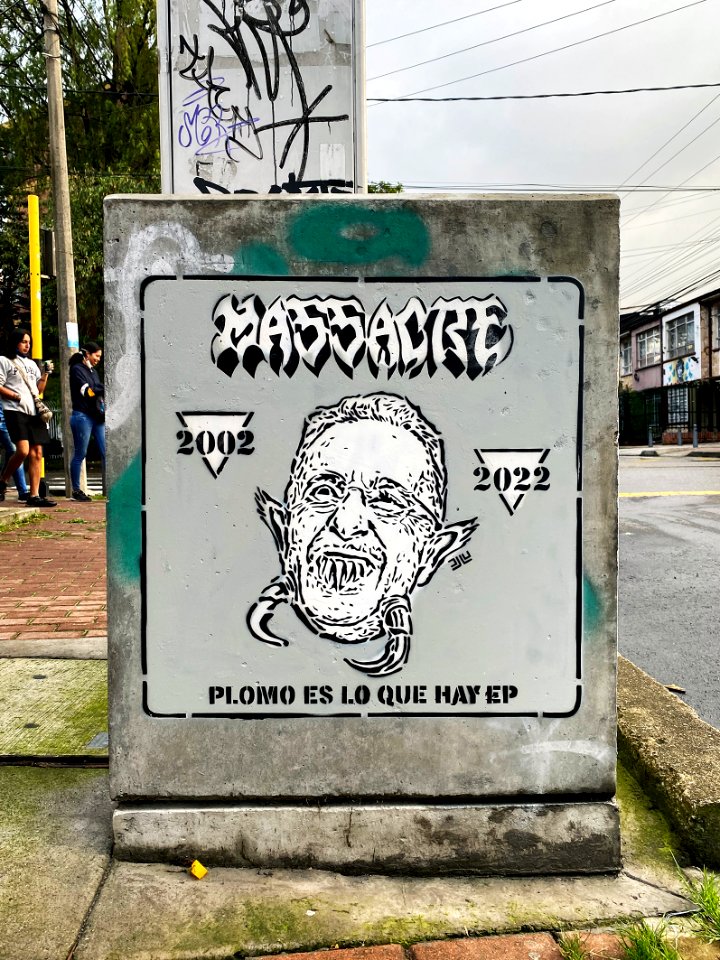 MASSACRE
2002
2022
PLOMO ES LO QUE HAY EP